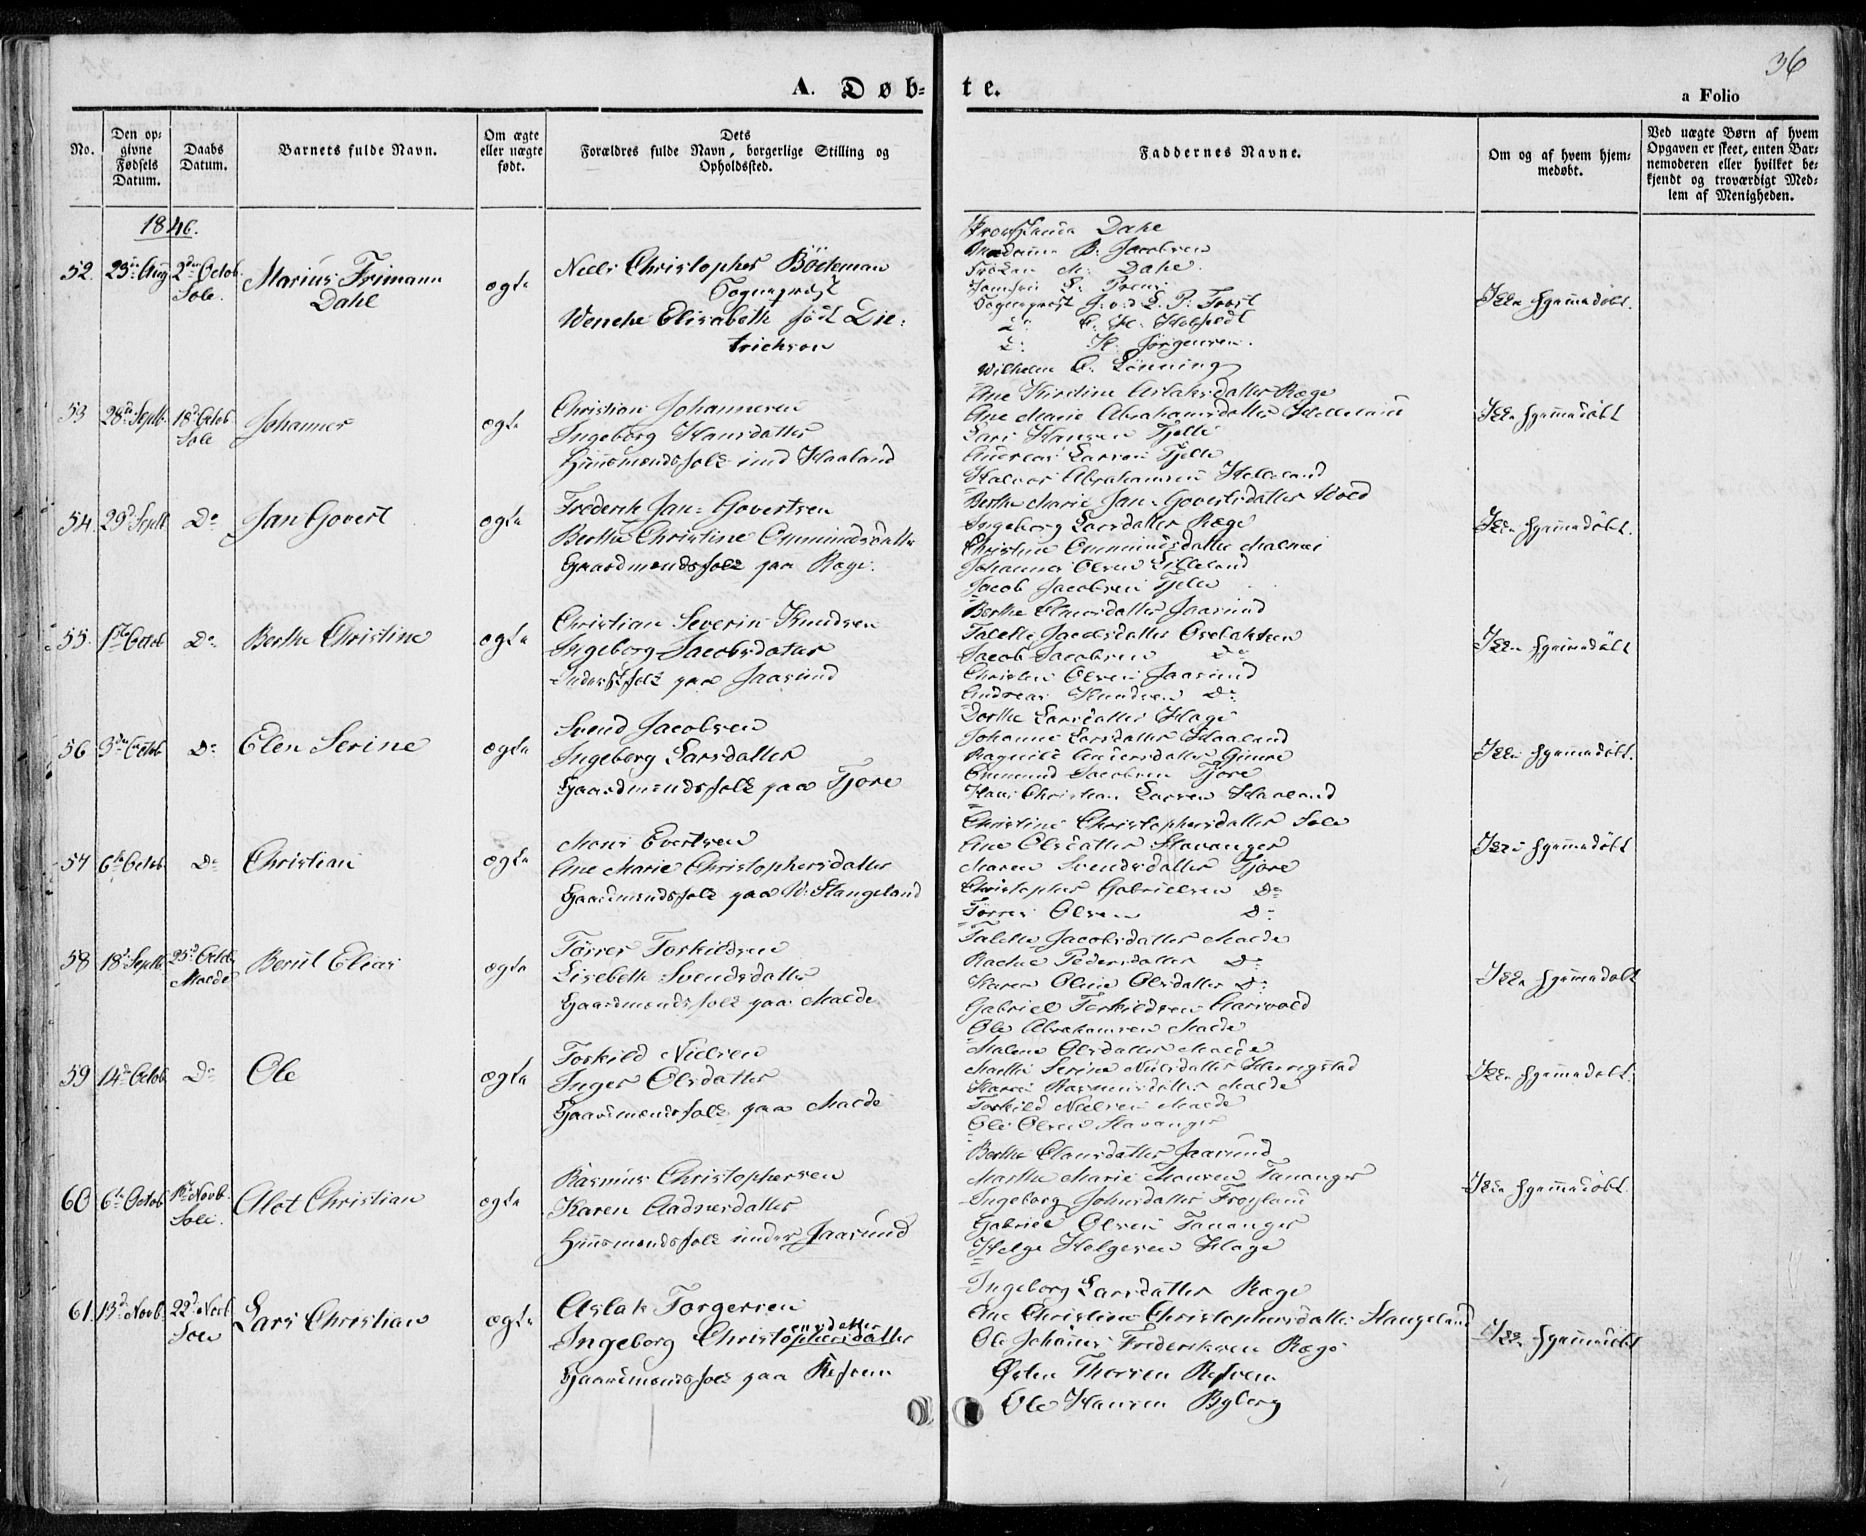 36
A. Døbte.
a Folio
No.
Den opgivne Fødsels Datum.
Daabs Datum.
Barnets fulde Navn.
Om ægte eller uægte født.
Dets Forældres fulde Navn, borgerlige Stilling og Opholdssted.
Faddernes Navne.
Om og af hvem hjemmedøbt.
Ved uægte Børn af hvem Opgaven er skeet, enten Barnemoderen eller hvilket bekjendt og troværdigt Medlem af Menigheden.
1846.
52. 23de Aug 2den Octob. Sole.
Marius Frimann
Dahl
ægte
Niels Christopher Bödtcman
Sognepræst
Wenche Elisabeth født Die=
trichson
Dahl
Madame B. Jacobsen
Frøken M. Dahl.
Jomfru
Sognepræst
Do
Do H. Jørgensen.
Wilhelm C. Lönning
Ikke hjemmedøbt.
53 28de Septb. 18de Octob Sole
Johannes
ægte
Christian Johannesen
Ingeborg Hansdatter
Huusmandsfolk und Haaland
Ane Kirstine Aslaksdatter Ræge
Ane Marie Abrahamsdatter Helleland
Lars Hansen Tjelte
Andreas Larsen Tjelte
Halvor Abrahamsen Helleland
Ikke hjemmedøbt
54. 29de Septb Do
Jan Govert
ægte
Frederik Jan=Govertsen
Berthe Christine Ommundsdatter
Gaardmandsfolk paa Ræge.
Berthe Marie Jan=Govertsdatter Wold
Ingeborg Larsdatter Ræge
Christine Ommundsdatter Malmei
Johannes Olsen Lilleland
Jacob Jacobsen Tjelte
Ikke hjemmedøbt.
55. 1ste Octob Do
Berthe Christine
ægte
Christian Severin Knudsen
Ingeborg Jacobsdatter
Inderstfolk paa Jaasund
Berthe Clausdatter Jaasund
Talette Jacobsdatter
Jacob Jacobsen Do
Christen Olsen Jaasund
Andreas Knudsen Do
Ikke hjemmedøbt
56 3die Octob Do
Elen Serine
ægte
Svend Jacobsen
Ingeborg Larsdatter
Gaardmandsfolk paa Tjore
Dorthe Larsdatter Hage
Johanne Larsdatter Haaland
Ragnild Andersdatter Gimre
Ommund Jacobsen Tjore
Hans Christian Larsen Haaland
Ikke hjemmedøbt.
57 6te Octob Do
Christian
ægte
Mons Evertsen
Ane Marie Christophersdatter
Gaardmandsfolk paa W. Stangeland
Christine Christophersdatter Sole
Ane Olsdatter Stavanger
Maren Svendsdatter Tjore
Christopher Gabrielsen Do
Torres Olsen Do
Ikke hjemmedøbt
58 18de Septb 25de Octob Malde
Berul Elias
ægte
Torres Torkildsen
Lisebeth Svendsdatter
Gaardmandsfolk paa Malde
Talette Jacobsdatter Malde
Rachel Pedersdatter Do
Karen Oline Olsdatter Do
Gabriel Torkildsen
Ole Abrahamsen Malde
Ikke hjemmedøbt
59 14de Octob. Do
Ole
ægte
Torkild Nielsen
Inger Olsdatter
Gaardmandsfolk paa Malde
Malene Olsdatter Malde
Marthe Serine Nielsdatter Herrigstad
Karen Rasmusdatter Malde
Torkild Nielsen Malde
Ole Olsen Stavanger
Ikke hjemmedøbt.
60 6te Octob 1ste Novb. Sole.
Olot Christian
ægte
Rasmus Christophersen
Karen Aadnesdatter
Huusmandsfolk under Jaasund
Berthe Clausdatter Jaasund
Marthe Marie Monsen Tananger
Ingeborg Johnsdatter Frøyland
Gabriel Olsen Tananger
Helge Helgesen Hage
Ikke hjemmedøbt.
61. 13de Novb. 22de Novb. Sole
Lars Christian
ægte
Aslak Torgersen
ensdatter
Ingeborg Christophersdatter
Gaardmandsfolk paa Refsem
Ingeborg Larsdatter Ræge
Ane Christine Christophersdatter Stangeland
Ole Johannes Frederiksen Ræge
Østen Thorsen Refsem
Ole Hansen Byberg
Ikke hjemmedøbt